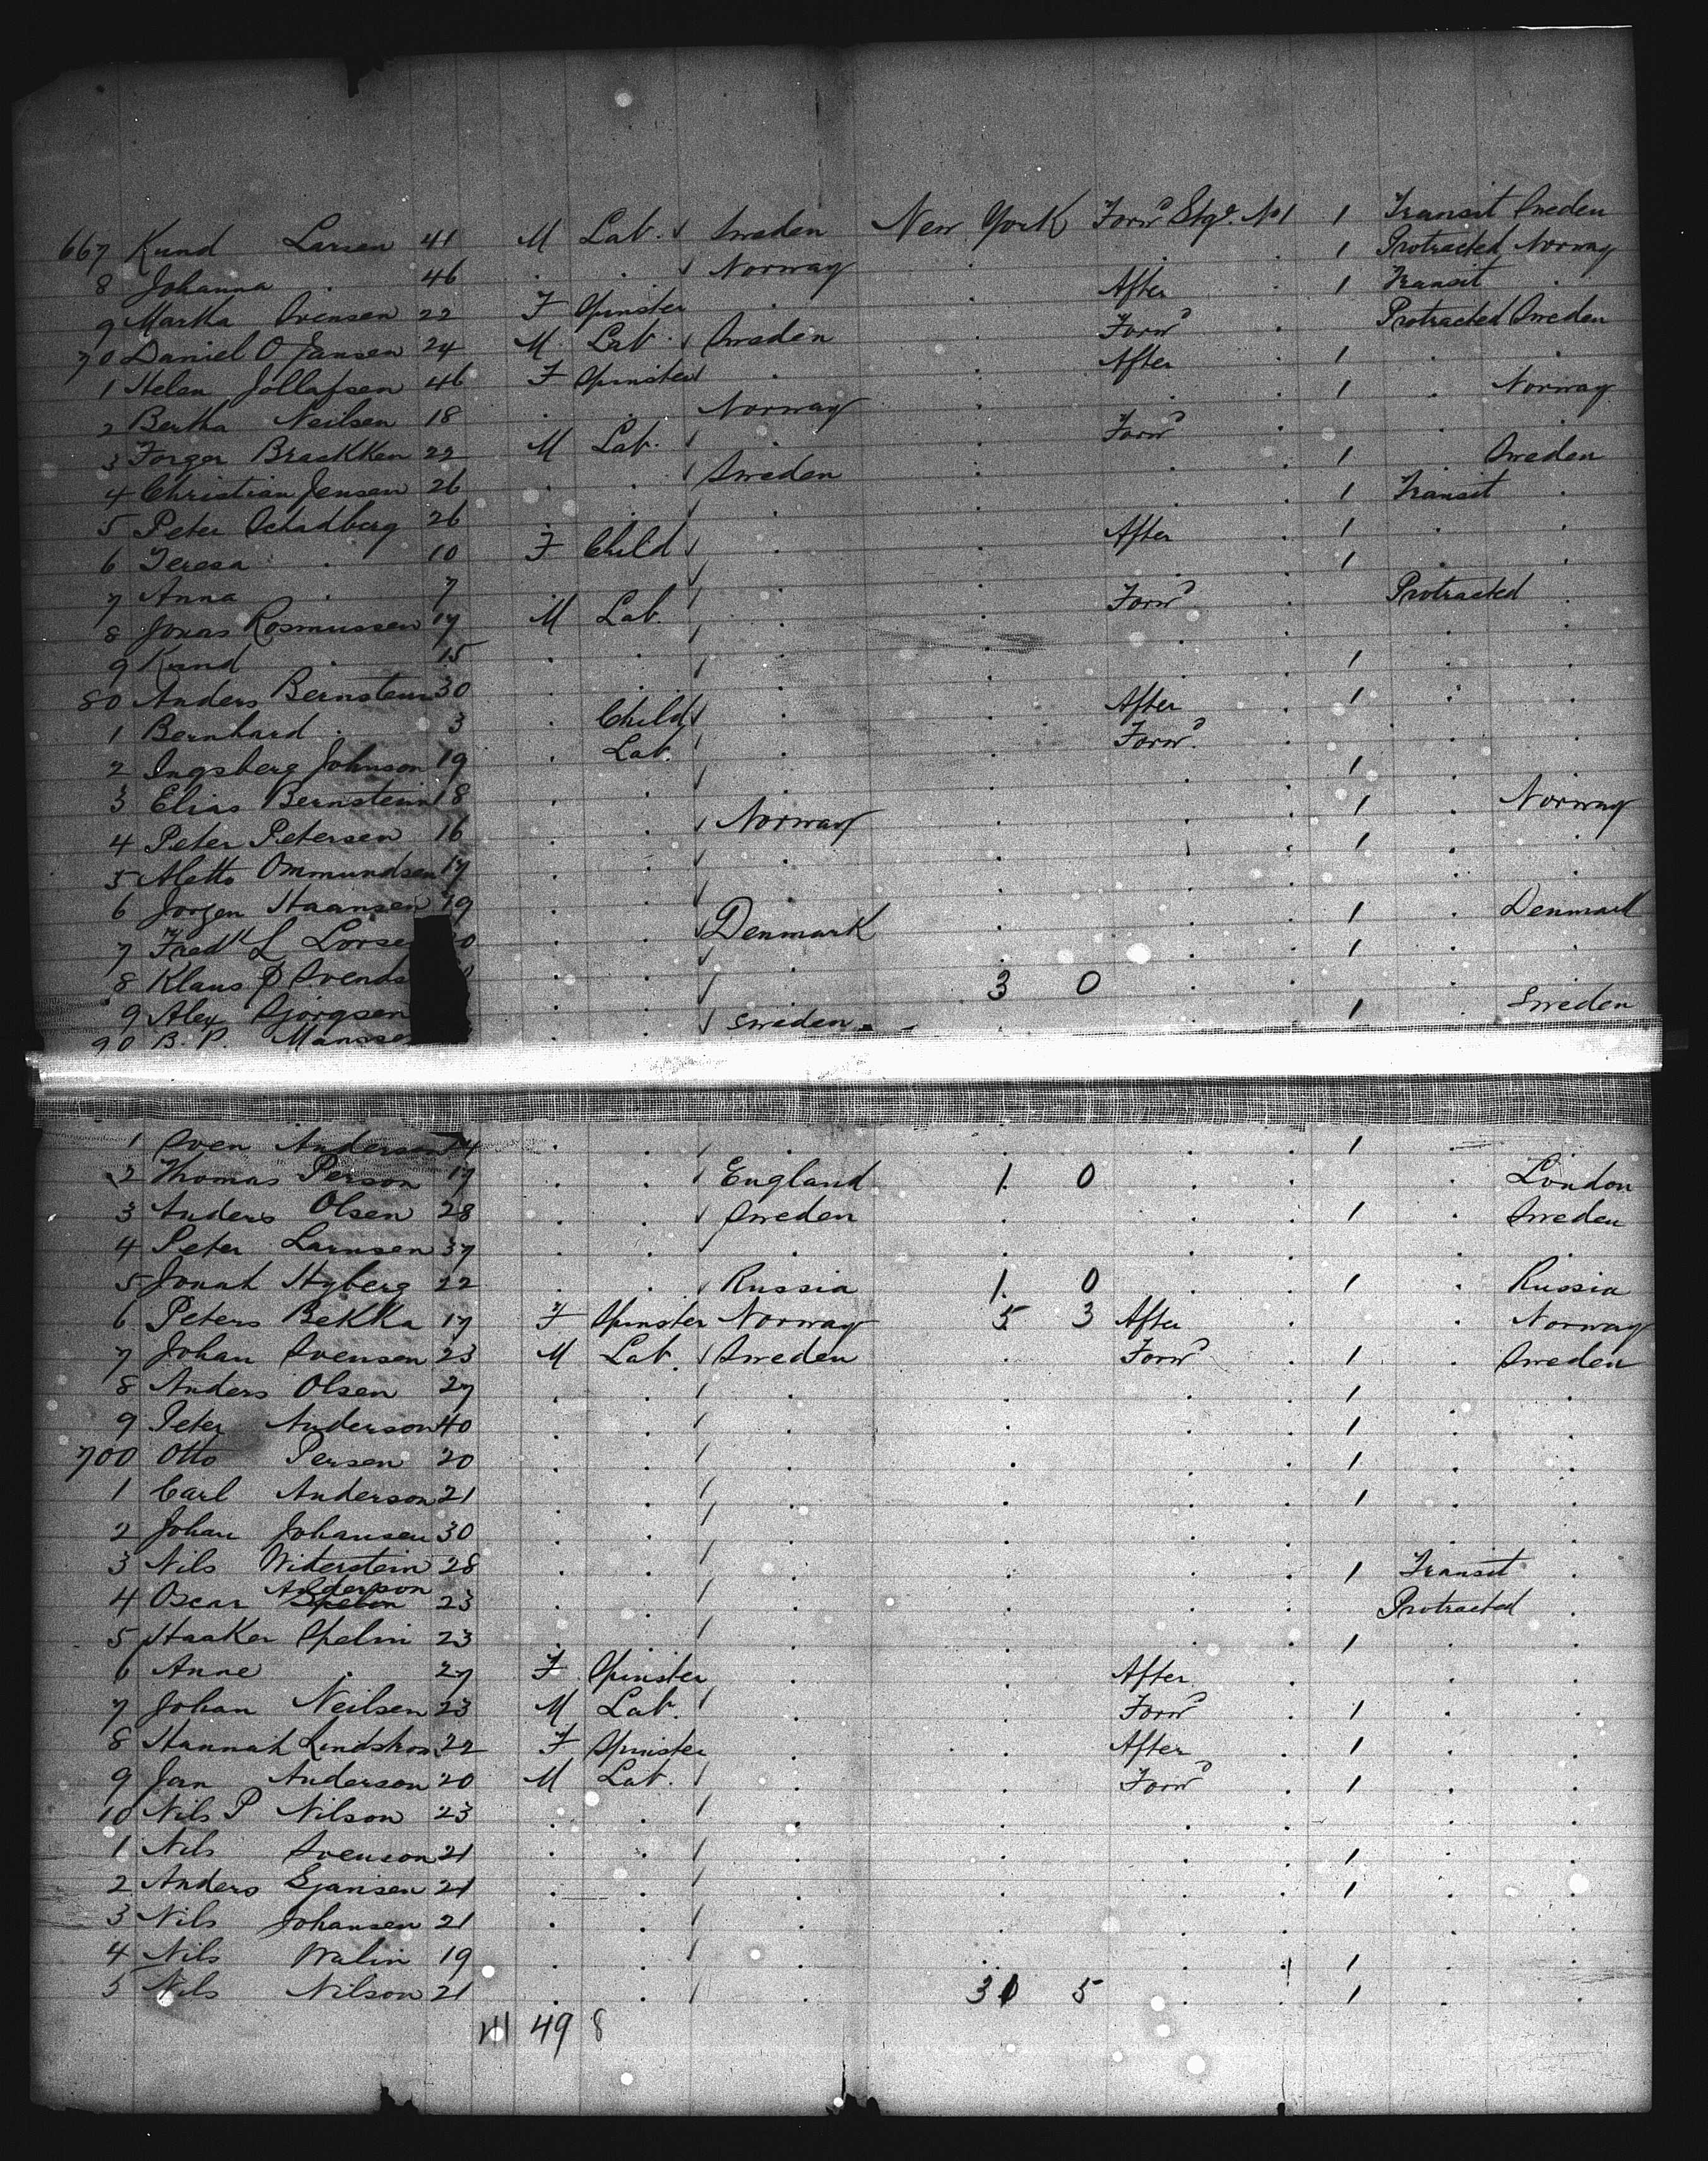 667 Kund Larsen 41 M Lab. Sweden New York Forwd Stge. No 1 1 Transit Sweden
8 Johanna . 46 . . Norway . . . 1 Protracted Norway
9 Martha Svensen 22 F Spinster . . After . 1 Transit .
70 Daniel O Jansen 24 M Lab. Sweden . Forwd . Protracted Sweden
1 Helen Jollafsen 46 F Spinster . . After . 1 . .
2 Bertha Neilsen 18 . . Norway . . . 1 . Norway
3 Forger Brackken 22 M Lab. . . Forwd . . .
4 Christian Jensen 26 . . Sweden . . . 1 . Sweden
5 Peter Schadberg 26 . . . . . . 1 Transit .
6 Teresa . 10 F Child . . After . 1 . .
7 Anna . 7 . . . . . . 1 . .
8 Jonas Rosmussen 17 M Lab. . . Forwd . Protracted .
9 Kund . 15 . . . . . . . .
80 Anders Bernstein 30 . . . . . . 1 . .
1 Bernhard . 3 . Child . . After . 1 . .
2 Ingsberg Johnson 19 . Lab. . . Forwd . . .
3 Elias Bernstein 18 . . . . . . 1 . .
4 Peter Petersen 16 . . Norway . . . 1 . Norway
5 Aletto Ommundsen 17 . . . . . . 1 . .
6 Jorgen Haansen 19 . . . . . . . .
7 Fredk L Lorse 0 . . Denmark . . . 1 . Denmark
8 Klaus P Svends . . . . . . 1 . .
9 Alex Bjorgsen . . . 3 0 . . . .
90 B. P. Mansse . . Sweden . . . 1 . Sweden
1 Sven Anderson 14 . . . . . . 1 .
2 Thomas Person 17 . . England 1 0 . . . London
3 Anders Olsen 28 . . Sweden . . . 1 . Sweden
4 Peter Larnsen 37 . . . . . . . .
5 Jonah Hyberg 22 . . Russia 1 0 . . 1 . Russia
6 Peters Bekka 17 F Spinster Norway 5 3 After . . Norway
7 Johan Svensen 23 M Lab. Sweden . Forwd . 1 . Sweden
8 Anders Olsen 27 . . . . . . 1 . .
9 Peter Anderson 40 . . . . . . 1 . .
700 Otto Persen 20 . . . . . . 1 . .
1 Carl Anderson 21 . . . . . . 1 . .
2 Johan Johansen 30 . . . . . . . .
3 Nils Witerstein 28 . . . . . . 1 Transit .
4 Oscar Anderson 23 . . . . . . Protracted .
5 Haaker Spelin 23 . . . . . . 1 . .
6 Anne . 27 F Spinster . . After . . .
7 Johan Neilsen 23 M Lab. . . Forwd . 1 . .
8 Hannah Lindstrom 22 F Spinster . . After . 1 . .
9 Jan Anderson 20 M Lab. . . Forwd . 1 . .
10 Nils P Nilson 23 . . . . . . . .
1 Nils Svenson 21 . . . . . . 1 . .
2 Anders Gjansen 21 . . . . . . 1 . .
3 Nils Johansen 21 . . . . . . . .
4 Nils Walin 19 . . . . . . 1 . .
5 Nils Nilson 21 . . . 5 . . 1 . .
49 8